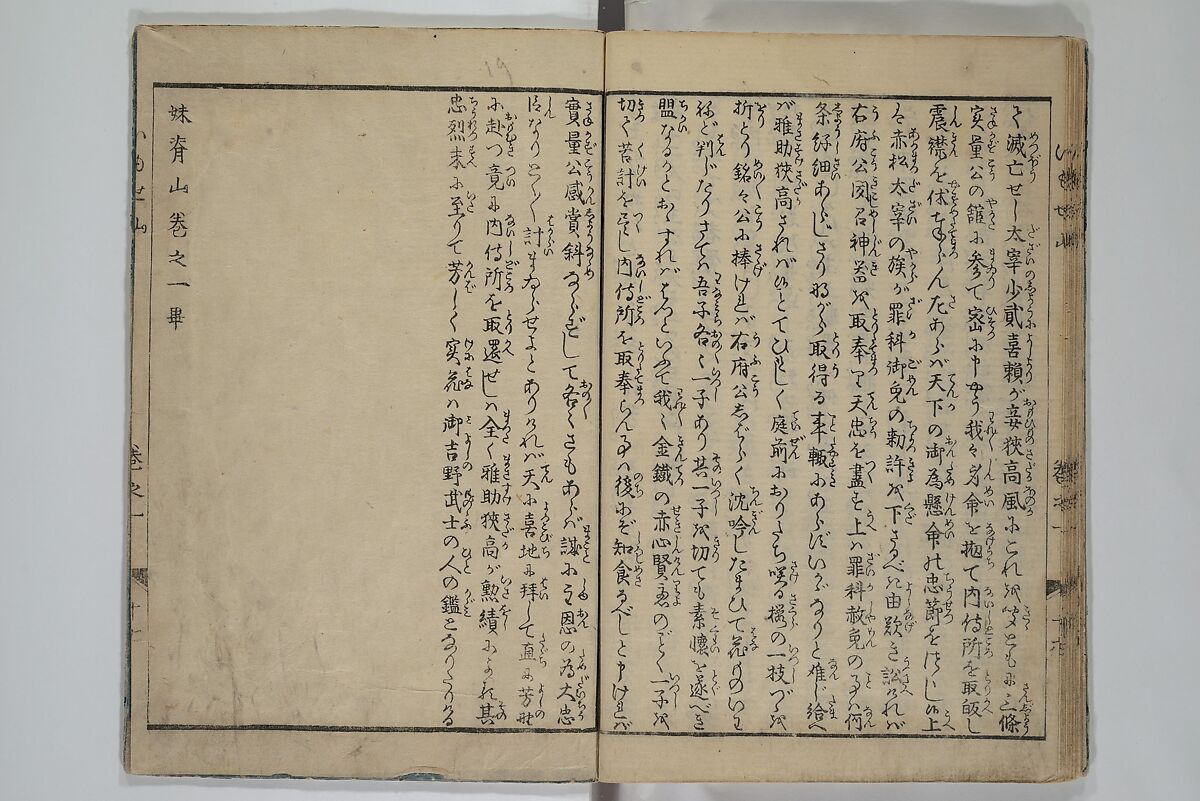 て滅亡せし太宰少貳喜頼が妾狭高風にこれを聞ともに三條
実量公の館に参て密に申やう我々身命を抛て内侍所を取皈し
震襟を休奉らんたあらバ天下の御為懸命の忠節をはくし候上
ハ赤松太宰の族が罪科御免の勅許を下さるべき由歎き訟れバ
右府公聞召神器を取奉り天忠を盡す上ハ罪科赦免の事ハ何
条仔細あらじさり乍がら取得る事輙にあらずいかゞなりと难じ給へ
バ雅助狭高されバ候とてひとしく庭前におりたち咲る桜の一枝づゝを
折とり銘々公に捧けれバ右府公志ばらく沈吟したまひて花ものいは
ねど判じたりさてハ吾子各々一子あり其一子を切ても素懐を遂べき
盟なるかとおふすれバはつといふて我々金鐵の赤心賢慮のごとく一子を
切て苦計を尽し内侍所を取奉らん事ハ後にぞ知食るべしと申けれバ
實量公感賞斜ならずして各々さもあらバ謀に主恩の為大忠
臣なりとく〳〵計まゐらせよとありけれバ天に喜地に拜して直に芳野
に赴つ竟に内侍所を取還せしハ全く雅助狭高が勲績によれ其
忠烈末に至りて芳しく実花ハ御吉野武士の人の鑑となりたりける
妹脊山巻之一畢
巻之一